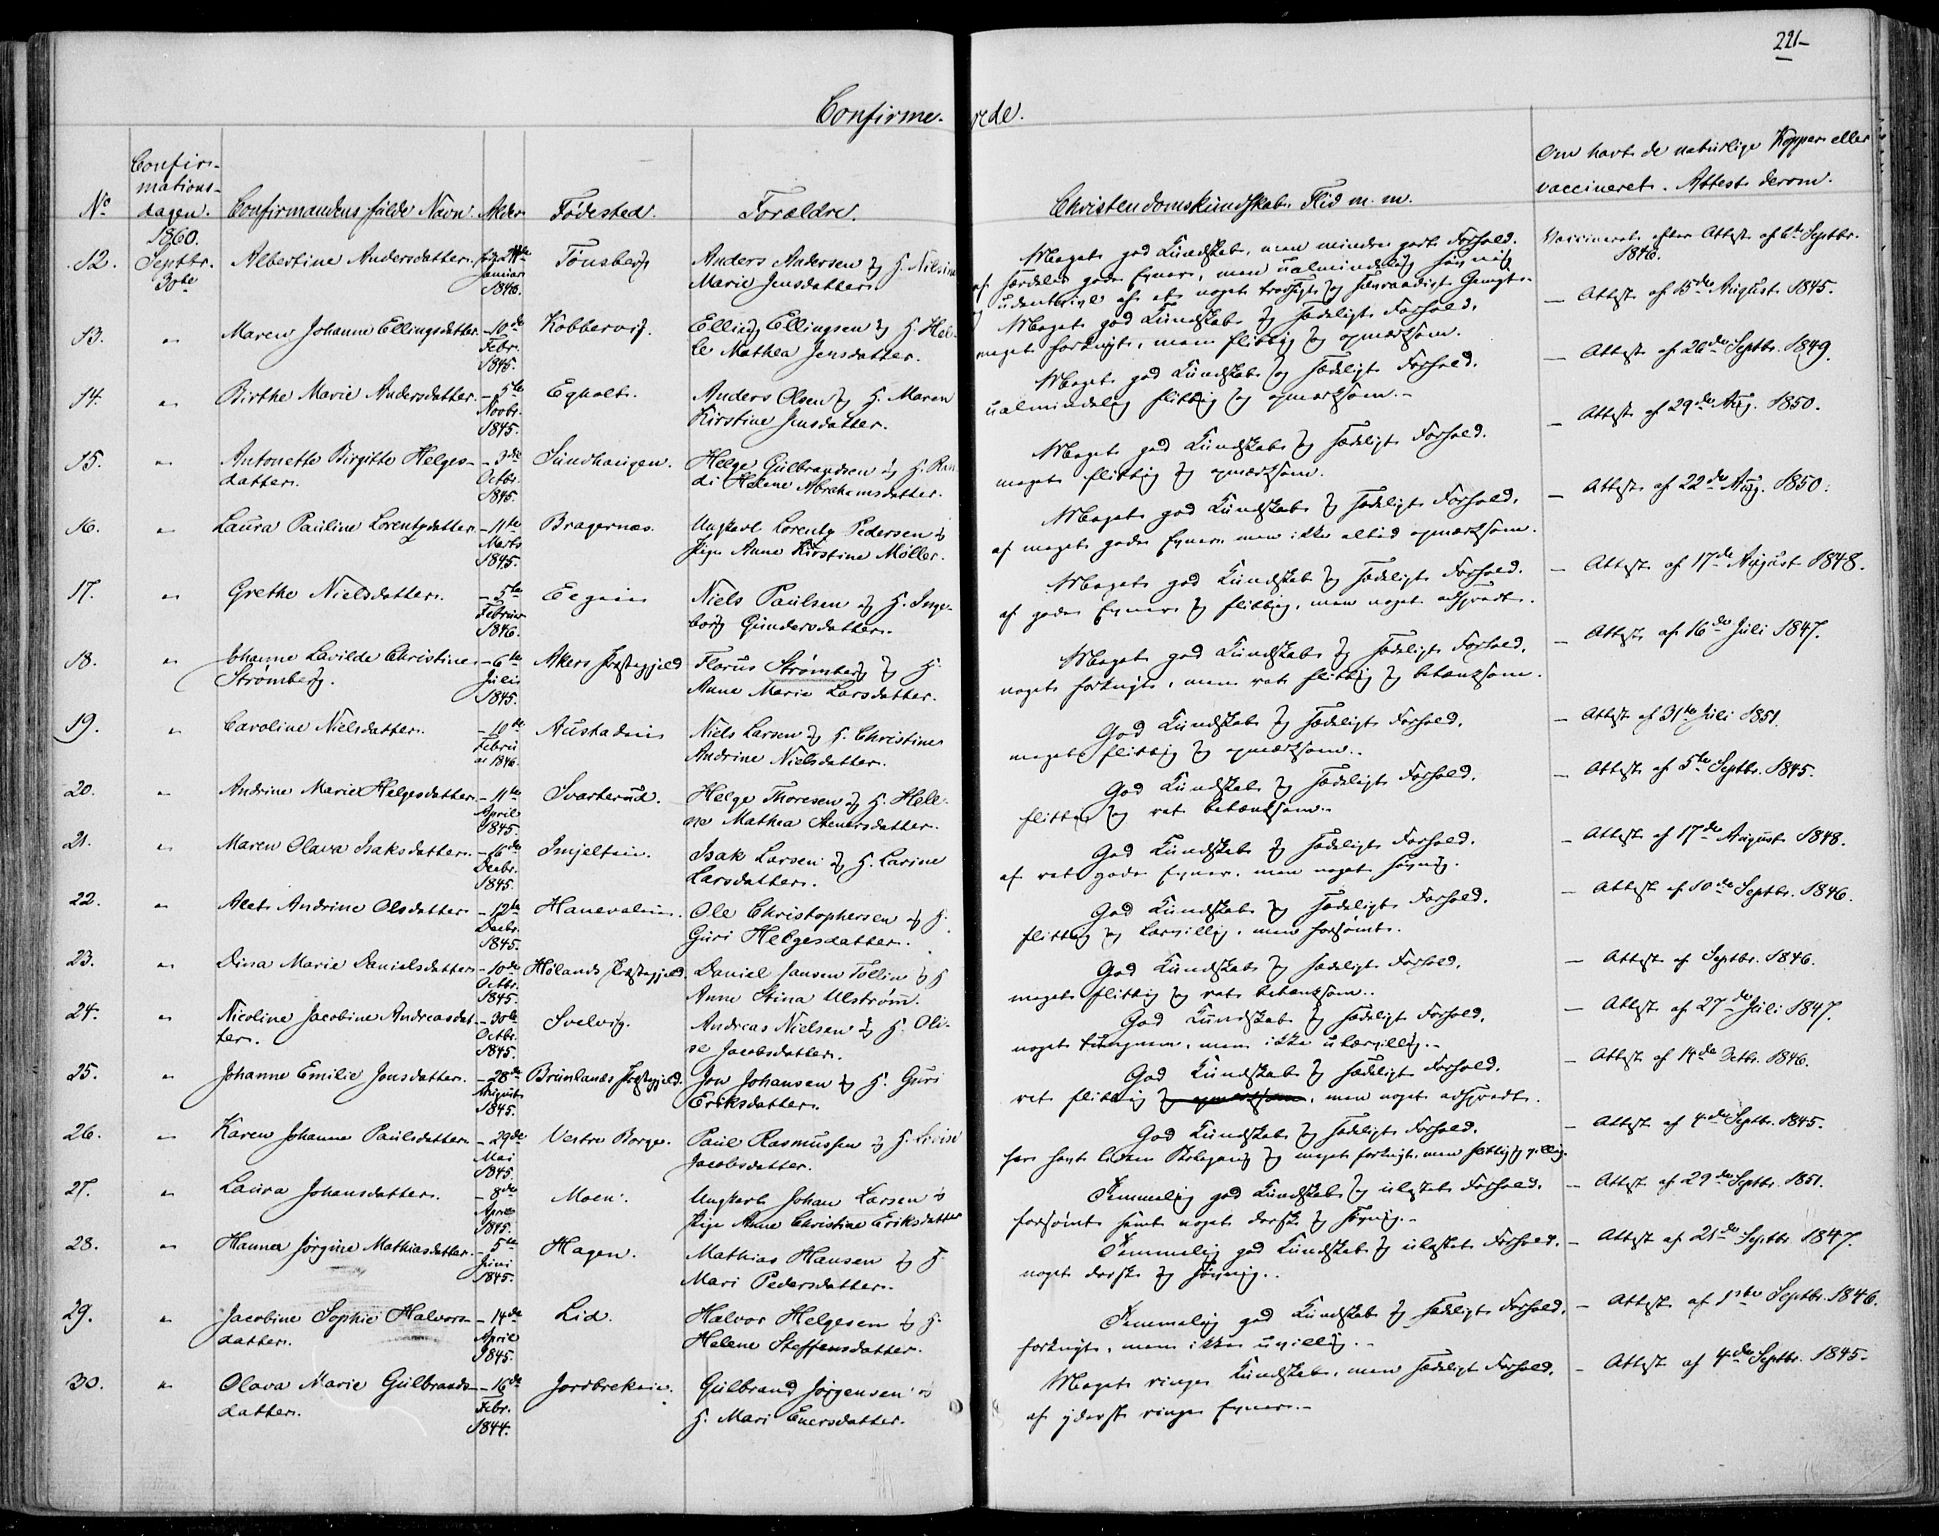 221-
Confirme- rede.
Confir-
mations-
No dagen. Confirmandens fulde Navn. Alder Fødested. Forældre. Christendomskundskab. Flid m. m.
Om havt de naturlige Kopper eller
vaccineret. Attest derom.
1860.
12. Septbr. 30te Albertine Andersdatter. Januar 1846. Tønsberg Anders Andersen og H.
Marie Jensdatter.
Meget god Kundskab, men mindre godt Forhold.
Vaccineret efter Attest af 6te Septbr.
1846.
13. " Maren Johanne Ellingsdatter. - 10de Febr. 1845. Kobbervig. Elling Ellingsen og H. Hel-
le Mathea Jensdatter.
Meget god Kundskab og sædeligt Forhold,
noget forknyt, men flittig og opmærksom.
- Attest af 15de August 1845.
14. " Birthe Marie Andersdatter. - 5te Novbr. 1845. Egholt. Anders Olsen og H. Maren
Kirstine Jensdatter.
Meget god Kundskab og sædeligt Forhold,
ualmindelig flittig og opmærksom.-
- Attest af 26de Septbr. 1849.
15. " Antonette Birgitte Helges-
datter. - 3de Octbr. 1845. Sundhaugen. Helge Gulbrandsen og H. Ran
di Helene Abrahamsdatter.
Meget god Kundskab og sædeligt Forhold.
meget flittig og opmærksom.
- Attest af 29de Aug. 1850.
16. " Laura Pauline Lorentzdatter - 11te Marts 1845. Bragernæs. Ungkarl Lorentz Pedersen og
Pige Anne Kirstine Møller.
Meget god Kundskab og sædeligt Forhold,
af meget gode Evner men ikke altid opmærksom.
- Attest af 22de Aug. 1850.
17. " Grethe Nielsdatter. - 5te Februar 1846. Niels Paulsen og H. Inge-
borg Gundersdatter.
Meget god Kundskab og sædeligt Forhold.
af gode Evner og flittig, men noget adspredt.
- Attest af 17de August 1848.
18. " Johanne Lavilde Christine
Strømberg. - 6te Juli 1845. Akers Præstegjeld Florus Strømberg og H.
Anne Marie Larsdatter.
Meget god Kundskab og sædeligt Forhold,
noget forknyt, men ret flittig og betænksom.
- Attest af 16de Juli 1847.
19. " Caroline Nielsdatter. - 10de Februar 1846. Niels Larsen og H. Christine
Andrine Nielsdatter.
God Kundskab og sædeligt Forhold.
meget flittig og opmærksom.
- Attest af 31te Juli 1851.
20. " Andrine Marie Helgesdatter. - 11te April 1845. Svarterud. Helge Thoresen og H. Hele-
ne Mathea Stenersdatter.
God Kundskab og sædeligt Forhold.
flittig og ret betænksom.
- Attest af 5te Septbr. 1845.
21. " Maren Olava Isaksdatter. - 16de Decbr. 1845. Isak Larsen og H. Larine
Larsdatter.
God Kundskab og sædeligt Forhold.
af ret gode Evner, men noget sløvig.
- Attest af 17de August 1848.
22. " Alet Andrine Olsdatter - 12te Decbr. 1845. Ole Christophersen og H.
Guri Helgesdatter.
God Kundskab og sædeligt Forhold.
flittig og lærvillig, men forsømt.
- Attest af 10de Septbr. 1846.
23. " Dina Marie Danielsdatter - 10de Octbr. 1845. Hølands Præstegjeld. Daniel Jansen Tollin og H
Anne Stina Ulstrøm.
God Kundskab og sædeligt Forhold.
meget flittig og ret betænksom.
- Attest af Septbr. 1846.
24. " Nicoline Jacobine Andreasdat-
ter. - 30te Octbr. 1845. Svelvig. Andreas Nielsen og H. Oli-
ne Jacobsdatter.
God Kundskab og sædeligt Forhold.
noget tungnem, men ikke ulærvillig.-
- Attest af 27de Juli 1847.
25. " Johanne Emilie Jonsdatter. - 28de August 1845. Brunlanæs Præstegjeld. Jon Johansen og H. Guri
Eriksdatter.
God Kundskab og sædeligt Forhold.
ret flittig og opmærksom, men noget adspredt.
- Attest af 14de Octbr. 1846.
26. " Karen Johanne Paulsdatter - 29de Mai 1845. Vestre Borge. Paul Rasmussen og H. Lovise
Jacobsdatter.
God Kundskab og sædeligt Forhold.
- Attest af 4de Septbr. 1845.
27. " Laura Johansdatter. - 8de April 1845. Moen. Ungkarl Johan Larsen og
Pige Anne Christine Eriksdatter
Temmelig god Kundskab og ulastet Forhold.
forsømt samt noget dorsk og sløvig.-
- Attest af 29de Septbr. 1851.
28. " Hanna Jørgine Mathiasdatter. - 5te Juni 1845. Hagen. Mathias Hansen og H.
Mari Pedersdatter.
Temmelig god Kundskab og ulastet Forhold.
noget dorsk og sløvig.
- Attest af 21de Septbr. 1847.
29. " Jacobine Sophie Halvors-
datter. - 14de April 1845. Lid. Halvor Helgesen og H.
Helene Steffensdatter.
Temmelig god Kundskab og sædeligt Forhold.
forknyt, men ikke uvillig.-
- Attest af 1ste Septbr. 1846.
30. " Olava Marie Gulbrands-
datter. - 16de Febr. 1844. Gulbrand Jørgensen og
H. Mari Enersdatter.
Meget ringe Kundskab, men sædeligt Forhold.
af yderst ringe Evner.-
- Attest af 4de Septbr. 1845.